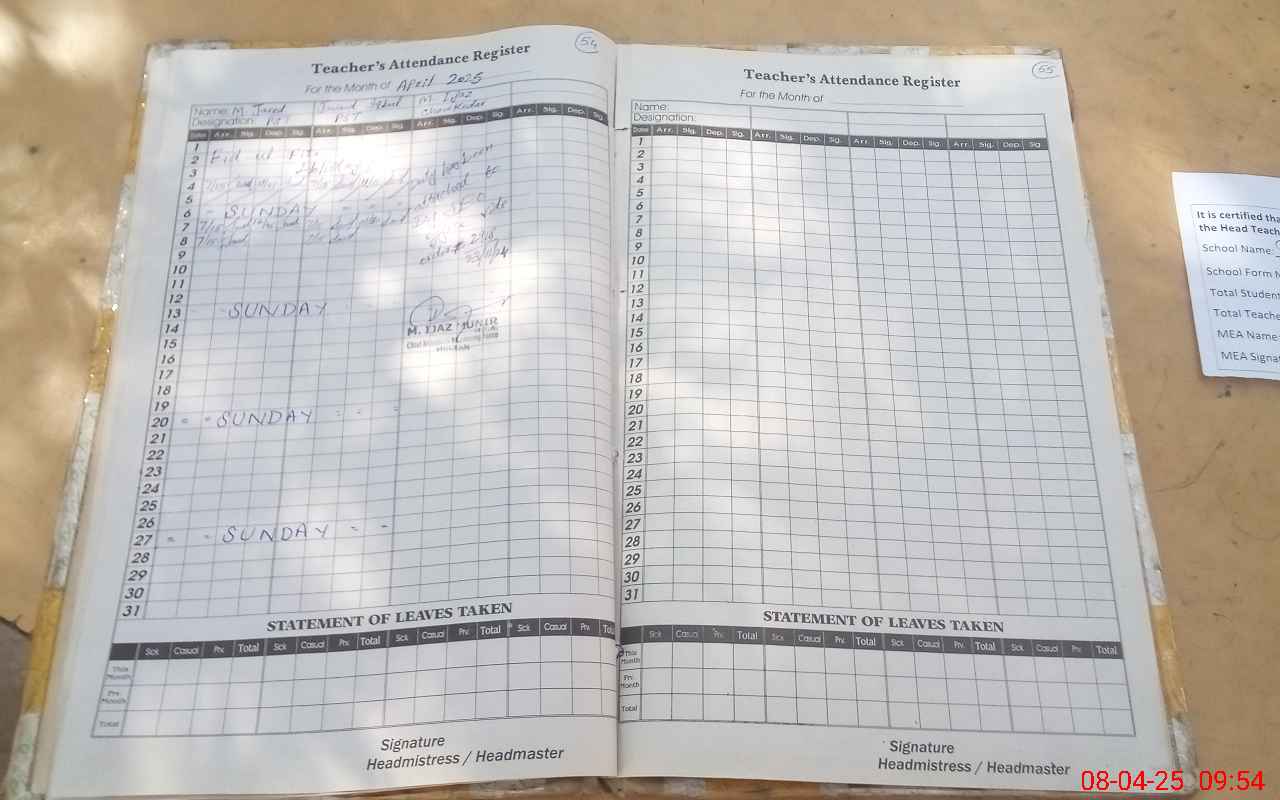 54
Teacher's Attendance Register
For the Month of April 2025
Name: M. Javed Javed Iqbal M. Ijaz
Designation: PST PST Chowkidar
Date Arr. Sig. Dep. Sig. Arr. Sig. Dep. Sig. Arr. Sig. Dep. Sig. Arr. Sig. Dep. Sig.
1
2 Eid ul Fitr
3
4
5
6 - SUNDAY - - -
7
8
9
10
11
12
13 - SUNDAY
M. IJAZ MUNIR
14
15
16
17
18
19
20 = - SUNDAY = - =
21
22
23
24
25
26
27 = - SUNDAY = -
28
29
30
31
STATEMENT OF LEAVES TAKEN
Sick Casual Prv. Total Sick Casual Prv. Total Sick Casual Prv. Total Sick Casual Prv. Total
This Month
Prv. Month
Total
Signature
Headmistress / Headmaster
55
Teacher's Attendance Register
For the Month of
Name:
Designation:
Date Arr. Sig. Dep. Sig. Arr. Sig. Dep. Sig. Arr. Sig. Dep. Sig. Arr. Sig. Dep. Sig.
1
2
3
4
5
6
7
8
9
10
11
12
13
14
15
16
17
18
19
20
21
22
23
24
25
26
27
28
29
30
31
STATEMENT OF LEAVES TAKEN
Sick Casual Prv. Total Sick Casual Prv. Total Sick Casual Prv. Total Sick Casual Prv. Total
This Month
Prv. Month
Total
Signature
Headmistress / Headmaster
It is certified tha
the Head Teach
School Name:
School Form N
Total Student
Total Teache
MEA Name:
MEA Signat
08-04-25 09:54